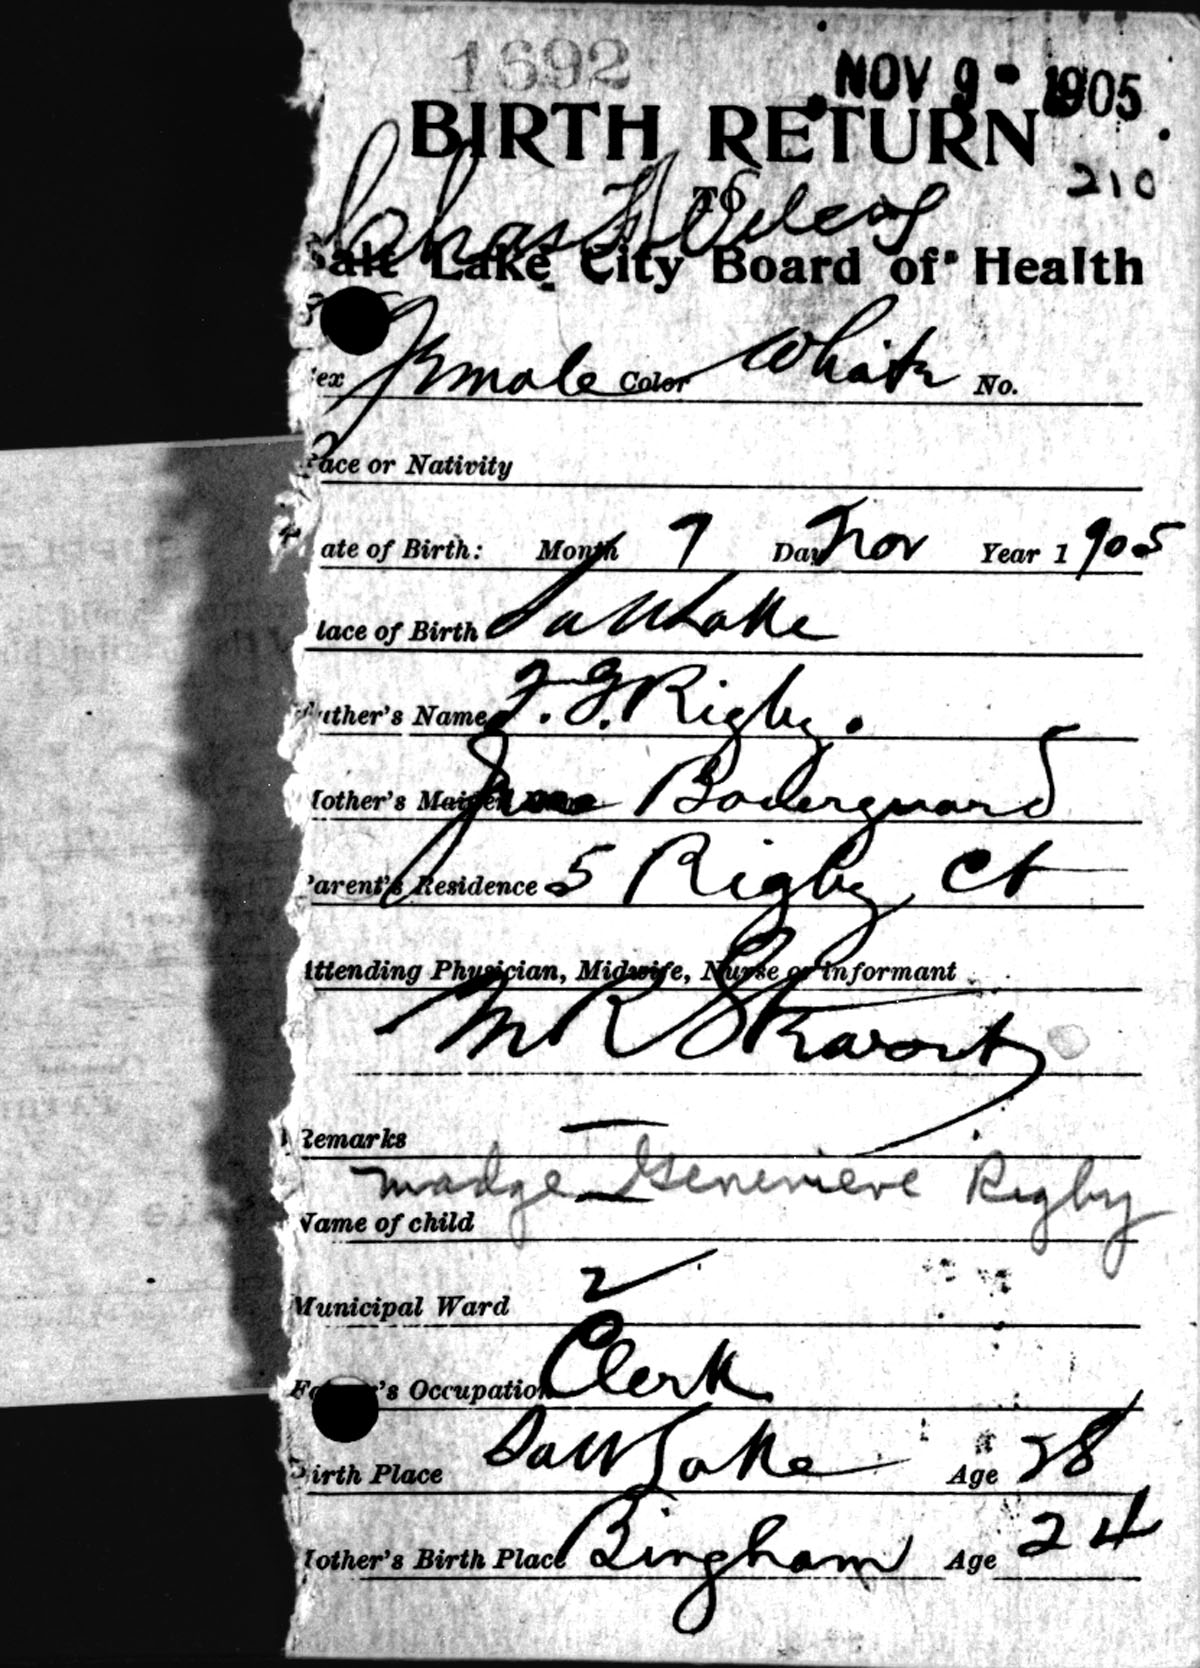 1692
NOV 9 - 1905
BIRTH RETURN
210
TO
Chas F Wilcox
Salt Lake City Board of Health
Sex Female Color White No.
Race or Nativity
Date of Birth: Month 7 Day Nov Year 1905
Place of Birth Salt Lake
Father's Name F. G. Rigby.
Mother's Maiden Name
Parent's Residence 5 Rigby Ct
Attending Physician, Midwife, Nurse or informant
M R Stewart
Remarks —
Madge Genevieve Rigby
Name of child —
Municipal Ward 2
Father's Occupation Clerk
Birth Place Salt Lake Age 28
Mother's Birth Place Bingham Age 24